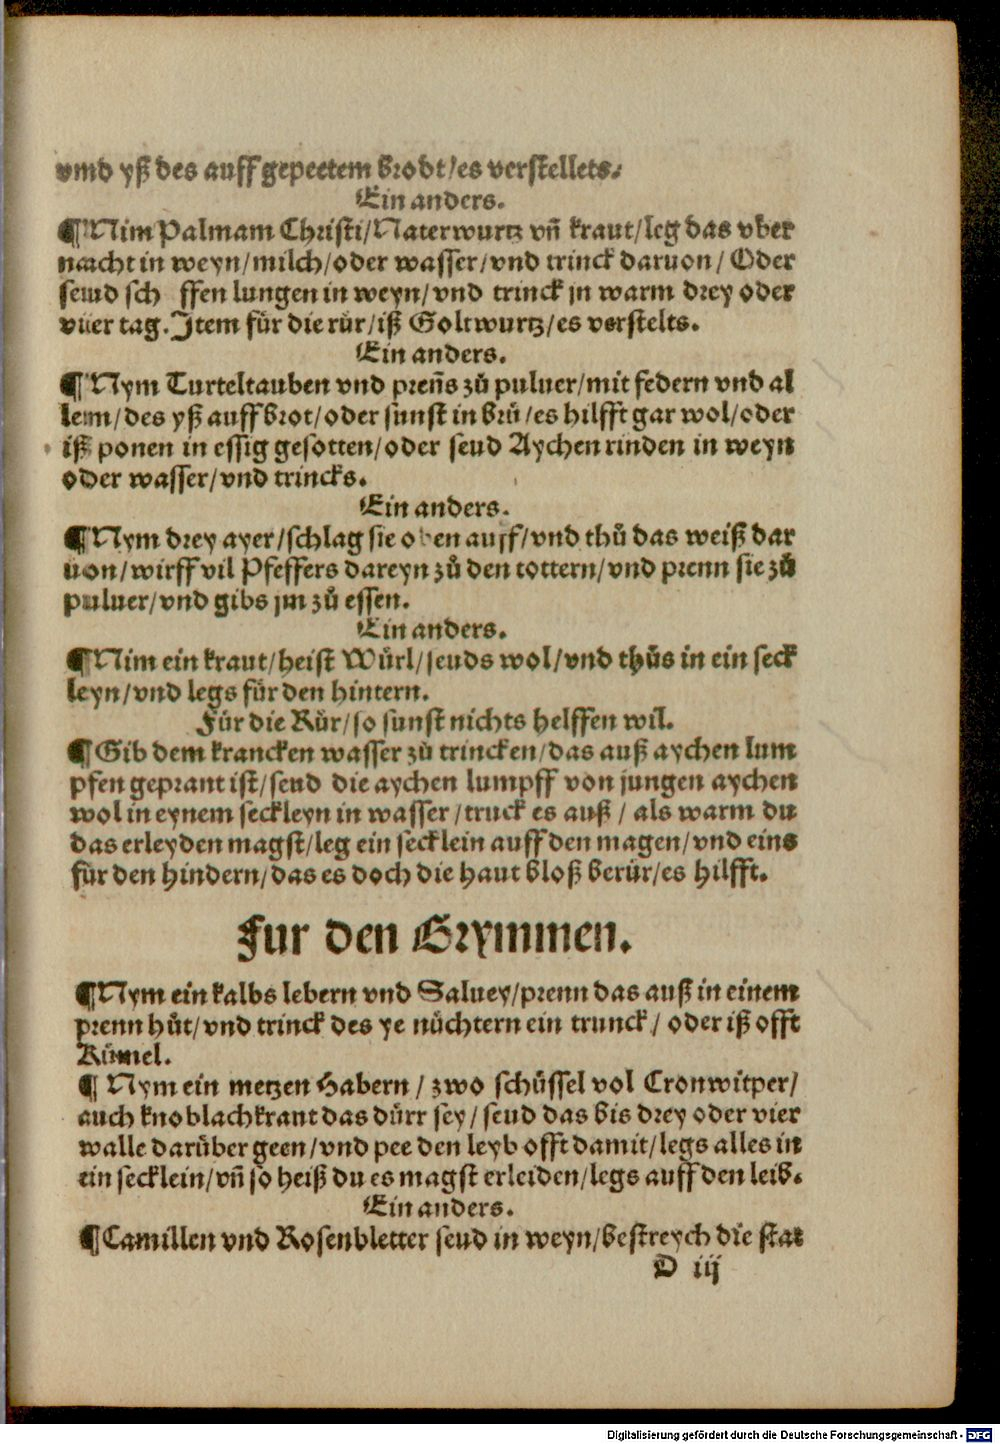 vnd yß des auff gepeetem brodt/es verstellets.
Ein anders.
¶ Nim Palmam Christi/Naterwurtz vñ kraut/leg das vber
nacht in weyn/milch/oder wasser/vnd trinck daruon/ Oder
seud sch ffen lungen in weyn/vnd trinck jn warm drey oder
vier tag. Item für die rür/iß Goltwurtz/es verstelts.
Ein anders.
¶ Nym Turteltauben vnd preñs zů puluer/mit federn vnd al
lem/des yß auff brot/oder sunst in brů/es hilfft gar wol/oder
iß ponen in essig gesotten/oder seud Aychen rinden in weyn
oder wasser/vnd trincks.
Ein anders.
¶ Nym drey ayer/schlag sie oben auff/vnd thů das weiß dar
uon/wirff vil Pfeffers dareyn zů den tottern/vnd prenn sie zů
puluer/vnd gibs jm zů essen.
Ein anders.
¶ Nim ein kraut/heist Würl/seuds wol/vnd thůs in ein seck
leyn/vnd legs für den hintern.
Für die Rür/so sunst nichts helffen wil.
¶ Gib dem krancken wasser zů trincken/das auß aychen lum
pfen geprant ist/seud die aychen lumpff von jungen aychen
wol in eynem seckleyn in wasser/truck es auß/ als warm du
das erleyden magst/leg ein secklein auff den magen/vnd eins
für den hindern/das es doch die haut bloß berür/es hilfft.
Fur den Grymmen.
¶ Nym ein kalbs lebern vnd Saluey/prenn das auß in einem
prenn hůt/vnd trinck des ye nüchtern ein trunck/ oder iß offt
Kümel.
¶ Nym ein metzen Habern/ zwo schüssel vol Cronwitper/
auch knoblachkraut das dürr sey/ seud das bis drey oder vier
walle darüber geen/vnd pee den leyb offt damit/legs alles in
ein secklein/vñ so heiß du es magst erleiden/legs auff den leib.
Ein anders.
¶ Camillen vnd Rosenbletter seud in weyn/bestreych die stat
D iij
Digitalisierung gefördert durch die Deutsche Forschungsgemeinschaft - DFG